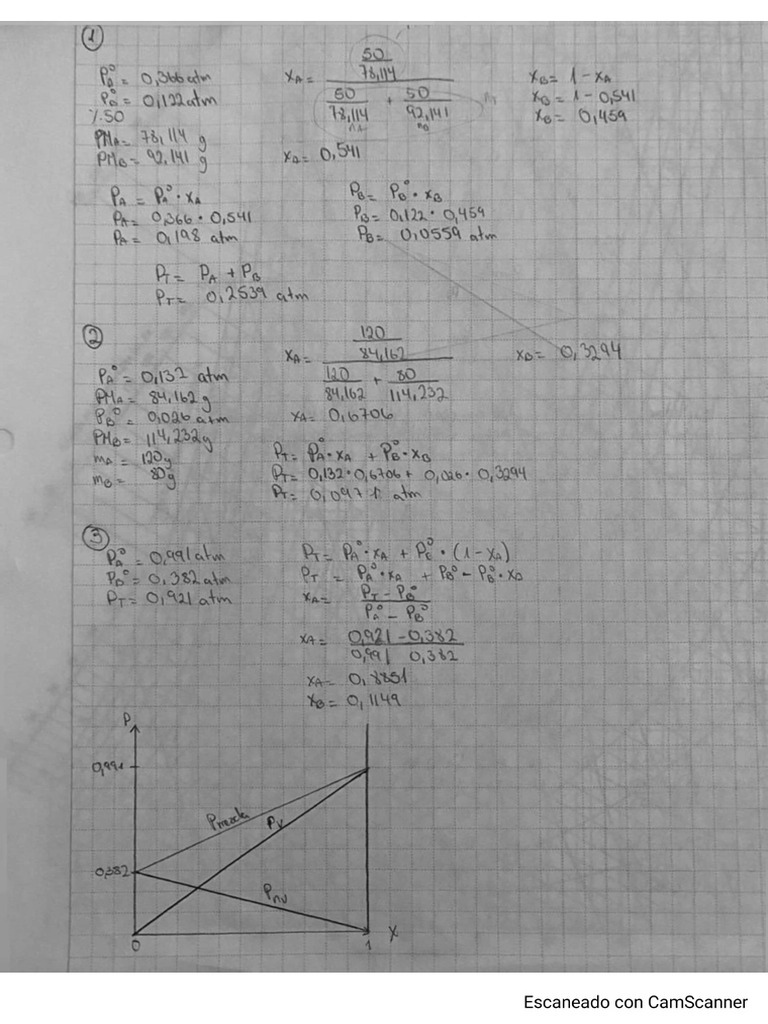 ①
P_A° = 0,366 atm
P_B° = 0,122 atm
%50
PM_A = 78,114 g
PM_B = 92,141 g
x_A = (50/78,114) / (50/78,114 + 50/92,141)
n_A n_B
x_A = 0,541
x_B = 1 - x_A
x_B = 1 - 0,541
x_B = 0,459
P_A = P_A° · x_A
P_A = 0,366 · 0,541
P_A = 0,198 atm
P_B = P_B° · x_B
P_B = 0,122 · 0,459
P_B = 0,0559 atm
P_T = P_A + P_B
P_T = 0,2539 atm
②
P_A° = 0,132 atm
PM_A = 84,162 g
P_B° = 0,026 atm
PM_B = 114,232 g
m_A = 120 g
m_B = 80 g
x_A = (120/84,162) / (120/84,162 + 80/114,232)
x_A = 0,6706
x_B = 0,3294
P_T = P_A° · x_A + P_B° · x_B
P_T = 0,132 · 0,6706 + 0,026 · 0,3294
P_T = atm
③
P_A° = 0,991 atm
P_B° = 0,382 atm
P_T = 0,921 atm
P_T = P_A° · x_A + · (1 - x_A)
P_T = P_A° · x_A + P_B° - P_B° ·
x_A = (P_T - P_B°) / (P_A° - P_B°)
x_A = (0,921 - 0,382) / (0,991 0,382)
x_A = 0,8851
x_B = 0,1149
P
0,991
Pmezcla
P_V
0,382
P_nv
0
1
X
Escaneado con CamScanner